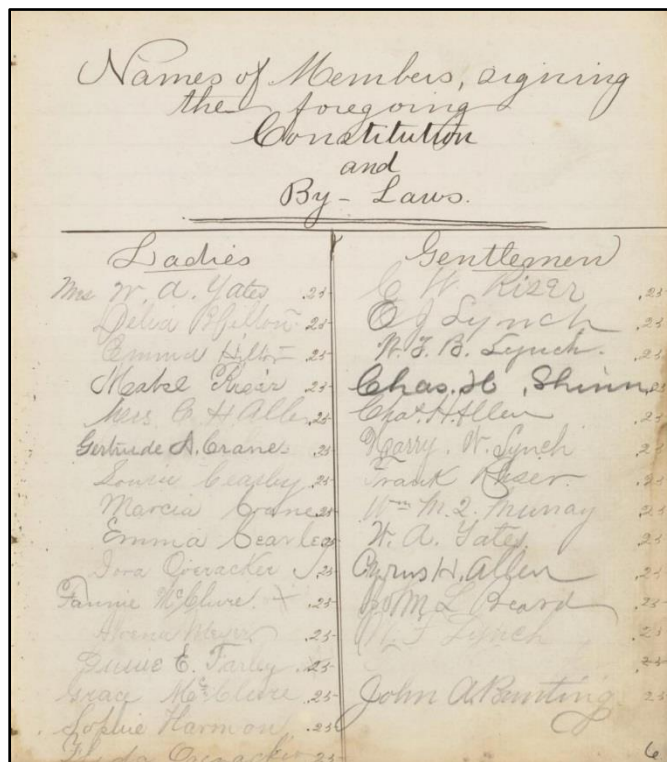 Names of Members, signing
the foregoing
Constitution
and
By-Laws.
Ladies
Mrs W. A. Yates .25
Delia Hilton .25
Emma Hilton .25
Mabel Riser .25
Mrs C H Allen .25
Gertrude A. Crane .25
.25
Marcia Crane .25
Emma .25
.25
Fannie McClure X .25
.25
E. Farley .25
Grace McClure .25
Sophie Harmon .25
.25
Gentlemen
C W Riser .25
E J Lynch .25
W. F. B. Lynch. .25
Chas. H. Shinn .25
Chas. H. Allen .25
Harry. W. Lynch .25
Frank Riser. .25
Wm M. Murray .25
W. A. Yates .25
Cyrus H. Allen .25
L Beard .25
F Lynch .25
.25
John A. Bunting .25
6